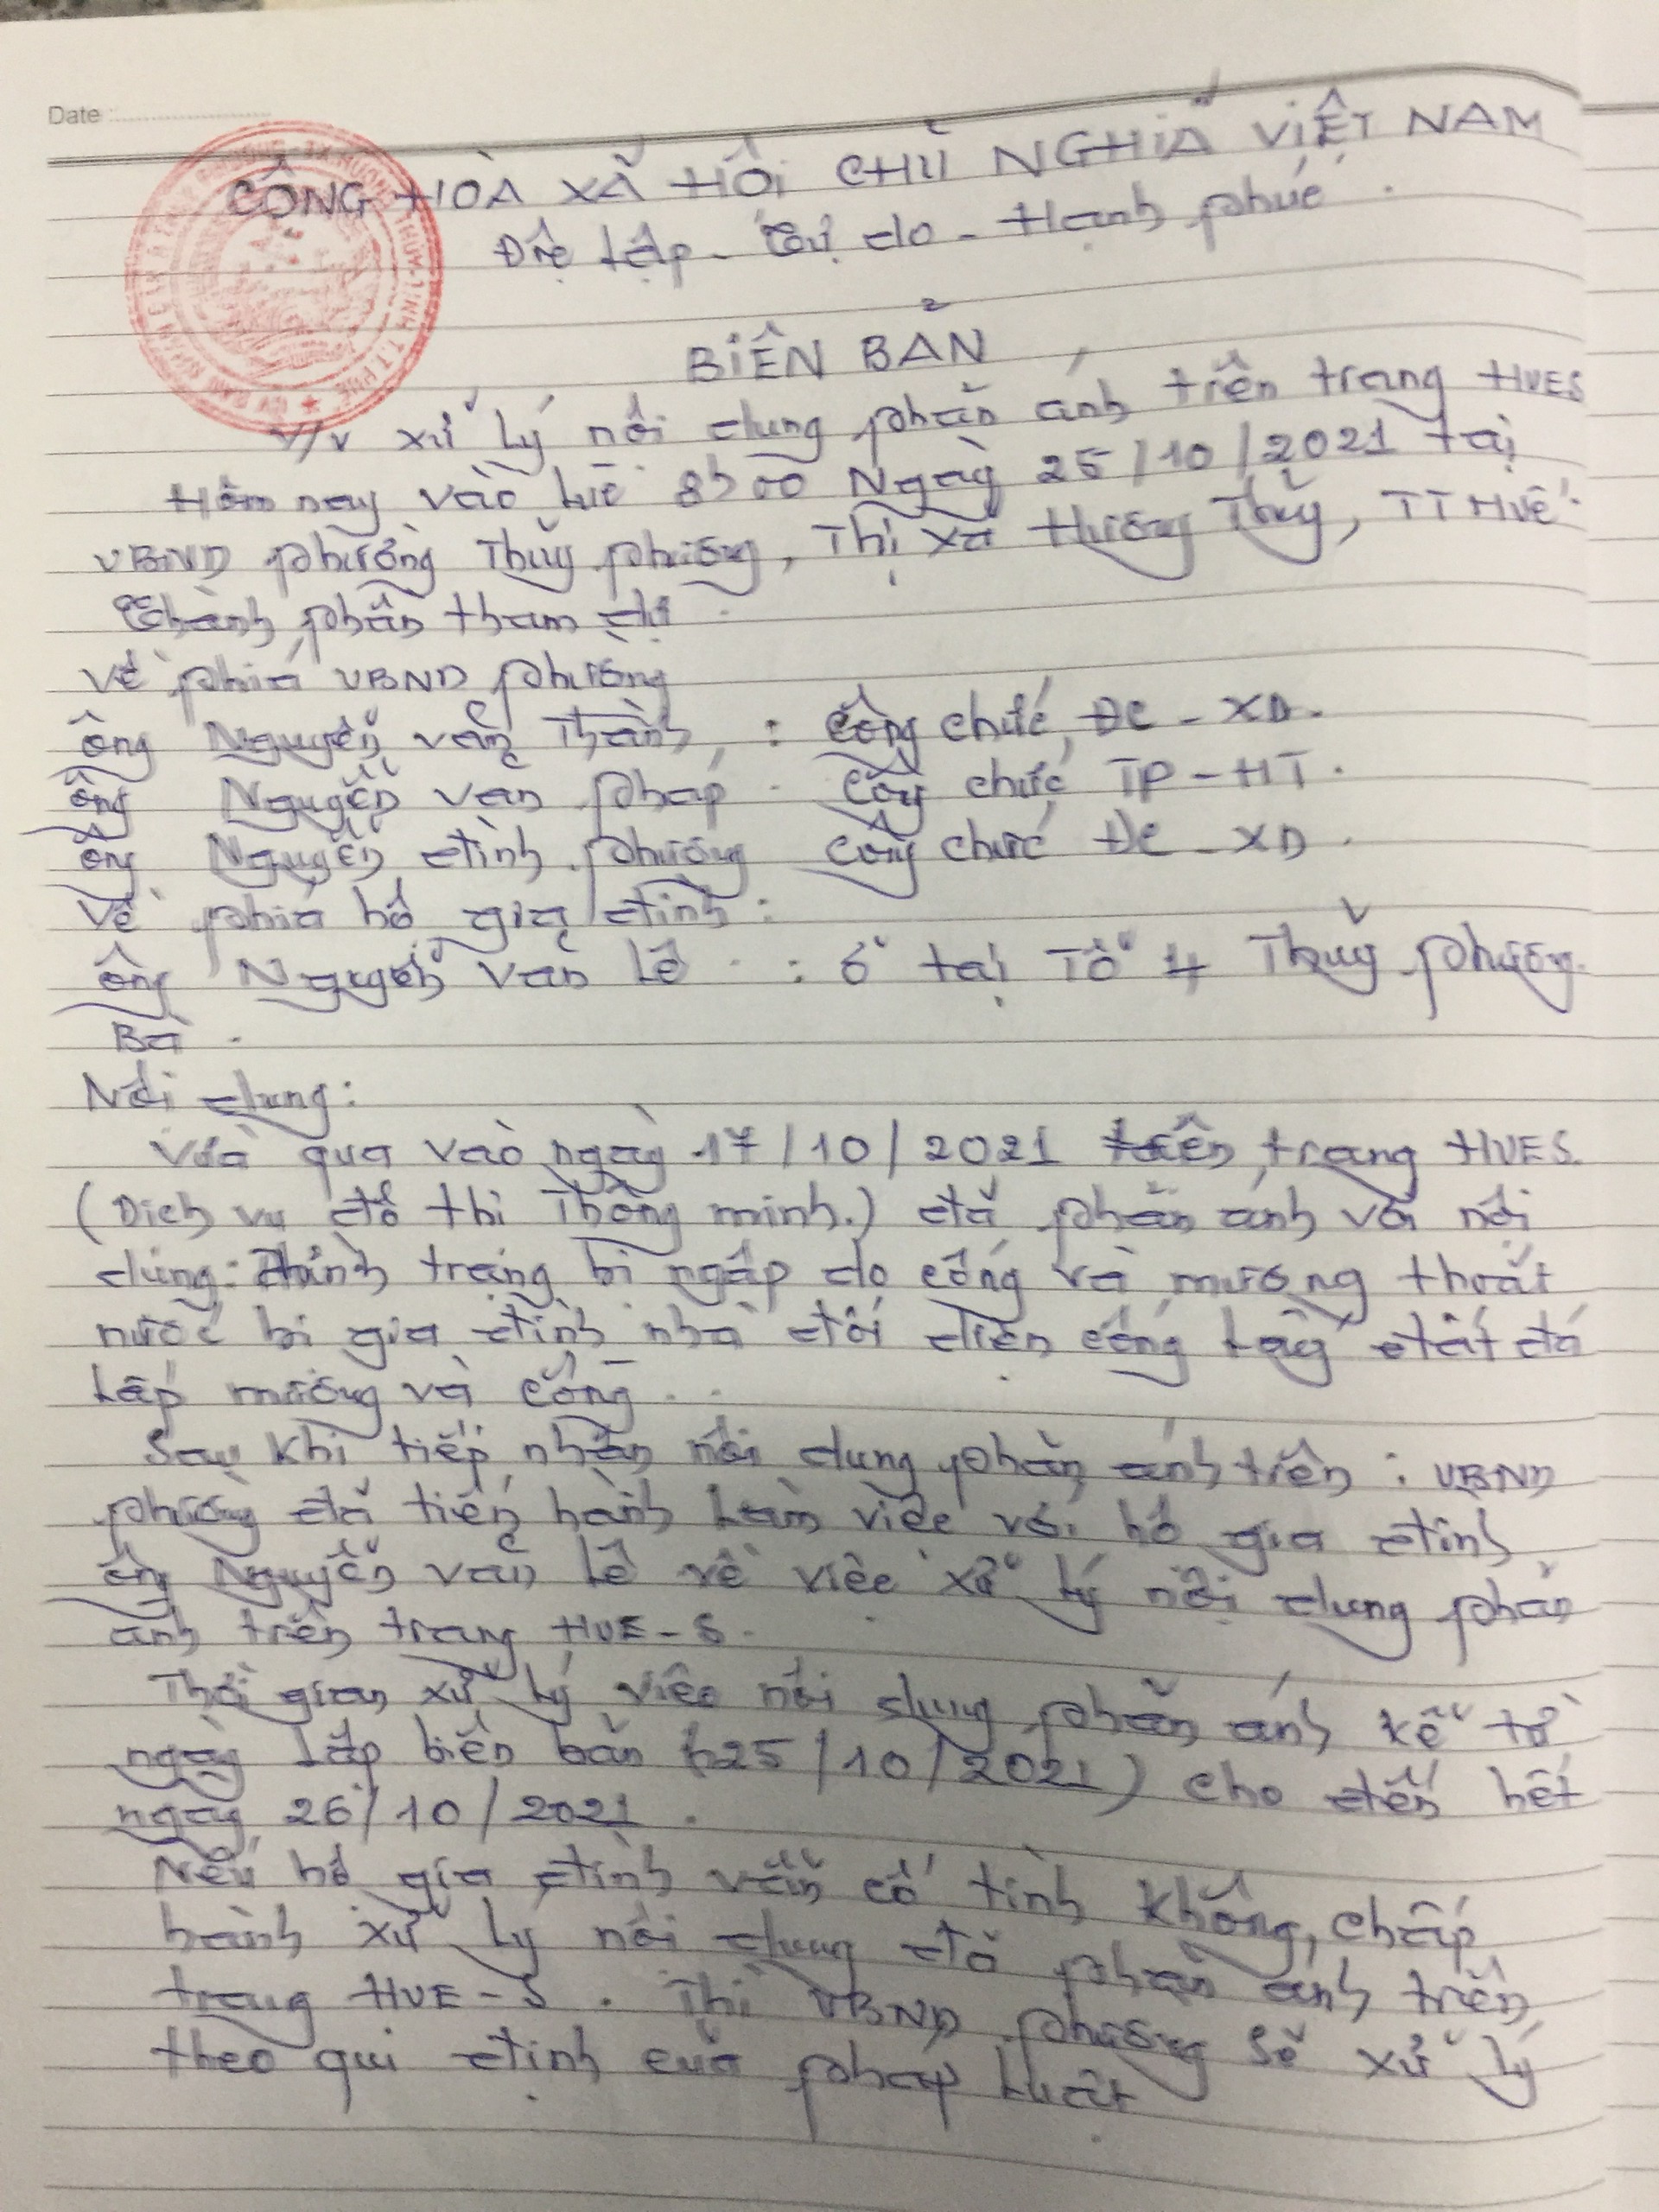 Date
CỘNG HÒA XÃ HỘI CHỦ NGHĨA VIỆT NAM
Độc lập - Tự do - Hạnh phúc
BIÊN BẢN
V/v xử lý nội dung phản ánh trên trang HUES
Hôm nay vào lúc 8h00 Ngày 25/10/2021 tại
UBND phường Thủy phương, Thị xã Hương Thủy, TT Huế
Thành phần tham dự
Về phía UBND phường
ông Nguyễn văn Thành : Công chức ĐC - XD.
ông Nguyễn văn pháp Công chức TP - HT.
ông Nguyễn đình phương Công chức ĐC - XD.
Về phía hộ gia đình :
ông Nguyễn văn Lê : ở tại Tổ 4 Thủy phương.
Bà
Nội dung :
Vừa qua vào ngày 17/10/2021 trên trang HUES.
(Dịch vụ đô thị Thông minh.) đã phản ánh với nội
dung: tình trạng bị ngập do cống và mương thoát
nước bị gia đình nhà đối diện cống lấy đất đá
lấp mương và cống.
Sau khi tiếp nhận nội dung phản ánh trên : UBND
phường đã tiến hành làm việc với hộ gia đình
ông Nguyễn văn Lê về việc xử lý nội dung phản
ánh trên trang HUE-S.
Thời gian xử lý việc nội dung phản ánh kể từ
ngày lập biên bản (25/10/2021) cho đến hết
ngày 26/10/2021.
Nếu hộ gia đình vẫn cố tình không chấp
hành xử lý nội dung đã phản ánh trên
trang HUE-S. Thì UBND phường sẽ xử lý
theo qui định của pháp luật.